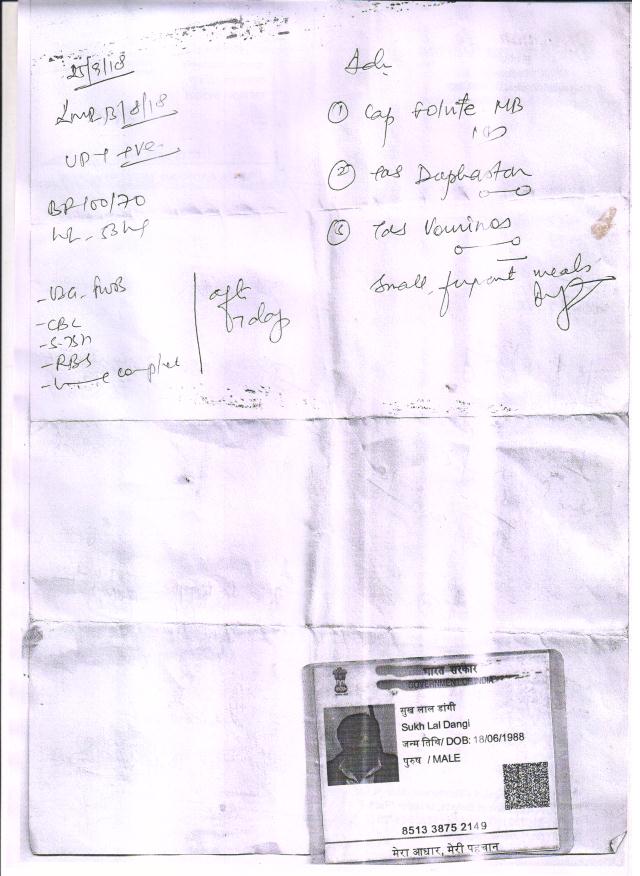 25/9/18
LMP 13/8/18
UPT +ve
BP 100/70
- USG. FWB
- CBC
- S. TSH
- RBS
- complet
aft
7 day
Adv
① Cap Folvite MB
② Tab Duphaston
③ Tab Vominos
Small, frquent meals
भारत सरकार
GOVERNMENT OF INDIA
सुख लाल डांगी
Sukh Lal Dangi
जन्म तिथि/ DOB: 18/06/1988
पुरुष / MALE
8513 3875 2149
मेरा आधार, मेरी पहचान